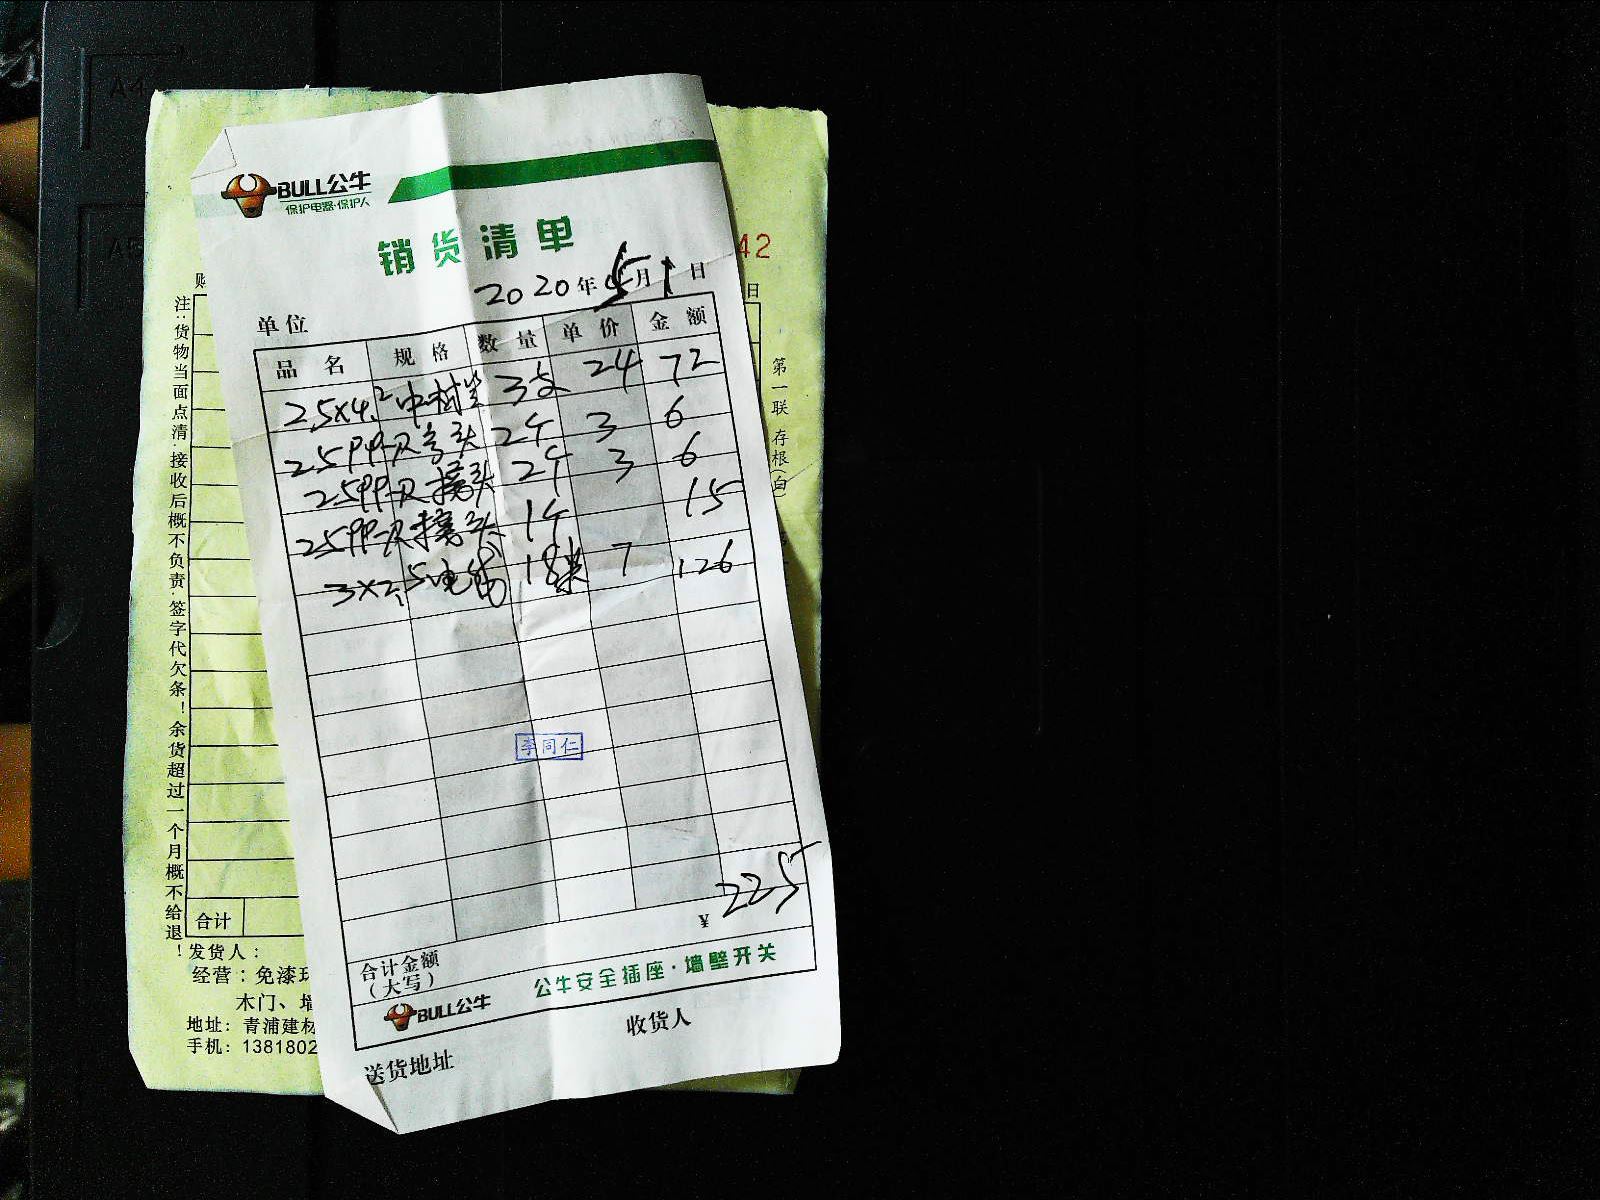 A4
A5
BULL公牛
保护电器·保护人
销货清单
2020年5月1日
单位
品名 规格 数量 单价 金额
2.5×4.² 中 3支 24 72
2.5 头 2个 3 6
2.5 接头 2个 3 6
2.5 接头 1个 15
3×2.5电 18米 7 126
李同仁
¥ 225
合计金额
(大写)
BULL公牛 公牛安全插座·墙壁开关
收货人
送货地址
42
日
购
注:货物当面点清·接收后概不负责·签字代欠条!余货超过一个月概不给退!
第一联 存根(白)
合计
发货人:
经营:免漆
木门、墙
地址:青浦建材
手机:1381802